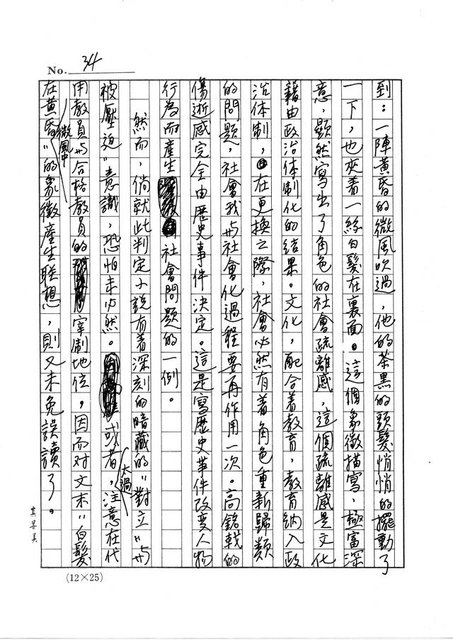 No. 34
到：一陣黃昏的微風吹過，他的茶黑的頭髮悄悄的擺動了
一下，也夾着一絲白髮在裏面。這個象徵描寫，極富深
意，顯然寫出了角色的社會疏離感，這個疏離感是文化
藉由政治体制化的結果。文化，配合着教育，教育納入政
治体制，在更換之際，社會必然有着角色重新歸類
的問題，社會我与社會化過程要再作用一次。高銘戟的
傷逝感完全由歷史事件決定。這是寫歷史事件改變人物
行為而產生社會問題的一例。
然而，倘就此判定小說有着深刻的暗藏的"對立"与
被壓迫"意識，恐怕未必然。或者，太過注意在代
用教員与合格教員的宰制地位，因而对文末"白髮
在黃昏微風中"的象徵產生聯想，則又未免誤讀了。
(12×25)